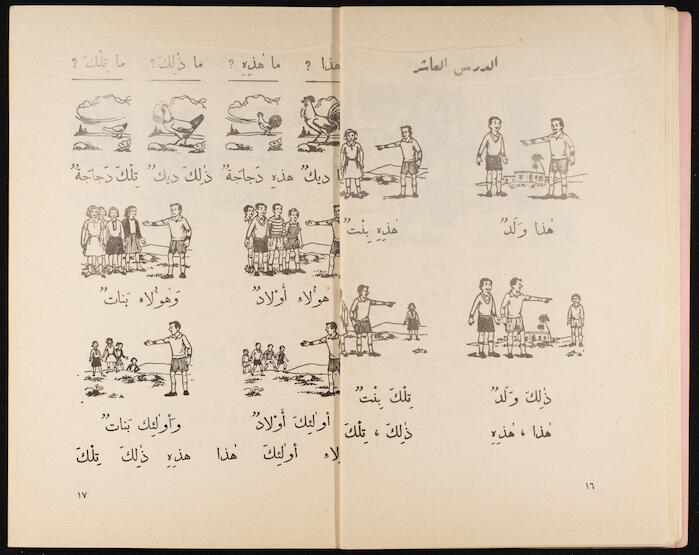 الدرس العاشر
هٰذا وَلَدٌ هٰذِهِ بِنْتٌ
ذٰلِكَ وَلَدٌ تِلْكَ بِنْتٌ
هٰذا ، هٰذِهِ ذٰلِكَ ، تِلْكَ
١٦
هٰذا ؟ ما هٰذِهِ ؟ ما ذٰلِكَ ؟ ما تِلْكَ ؟
ديكٌ هٰذِهِ دَجاجَةٌ ذٰلِكَ ديكٌ تِلْكَ دَجاجَةٌ
هٰؤُلاءِ أَوْلادٌ وَهٰؤُلاءِ بَناتٌ
أُولٰئِكَ أَوْلادٌ وَأُولٰئِكَ بَناتٌ
أولٰئِكَ هٰذا هٰذِهِ ذٰلِكَ تِلْكَ
١٧